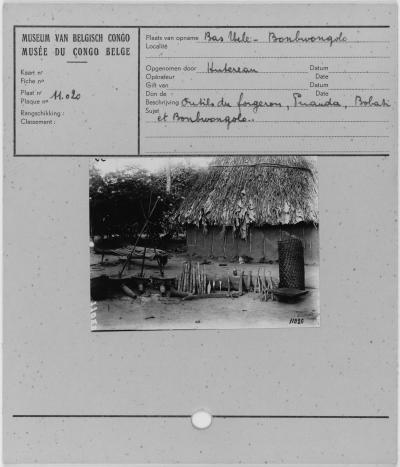 MUSEUM VAN BELGISCH CONGO
MUSÉE DU CONGO BELGE
Kaart nr
Fiche no
Plaat nr
Plaque no 11.020
Rangschikking :
Classement :
Plaats van opname Bas Uele - Bombwongolo
Localité
Opgenomen door Hutereau Datum
Opérateur Date
Gift van Datum
Don de Date
Beschrijving Outils du forgeron, Bobati
Sujet et Bombwongolo..
11020